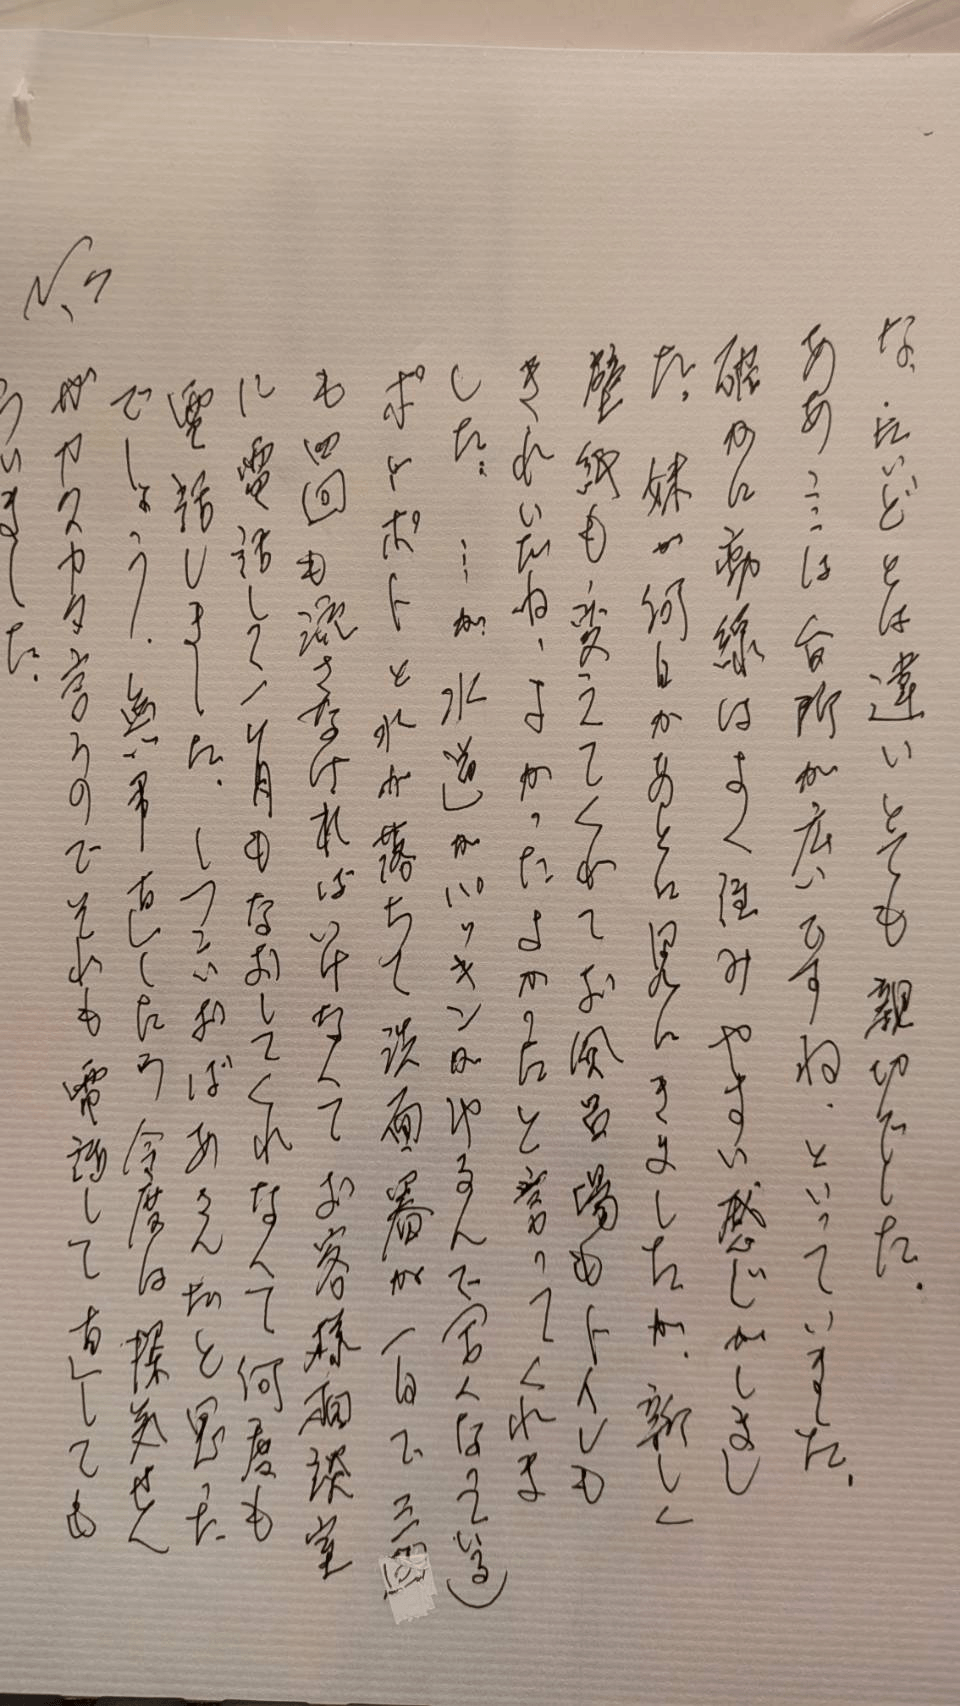 な、たいどとは違いとても親切でした。
ああここは台所が広いですね。といっていました。
確かに動線はよく住みやすい感じがしまし
た。妹が何日かあとに見にきましたが、新しく
壁紙も変えてくれてお風呂場もトイレも
きれいだね、よかったよかったと言ってくれま
した。…が、水道がパッキンがゆるんで古くなっている)
ポトポトと水が落ちて洗面器が一日で三回
も四回も流さなければいけなくてお客様相談室
に電話して1ヶ月もなおしてくれなくて何度も
電話しました。しつこいおばあさんだと思った
でしょう。無事直したら今度は換気せん
がカタカタ言うのでそれも電話して直しても
らいました。